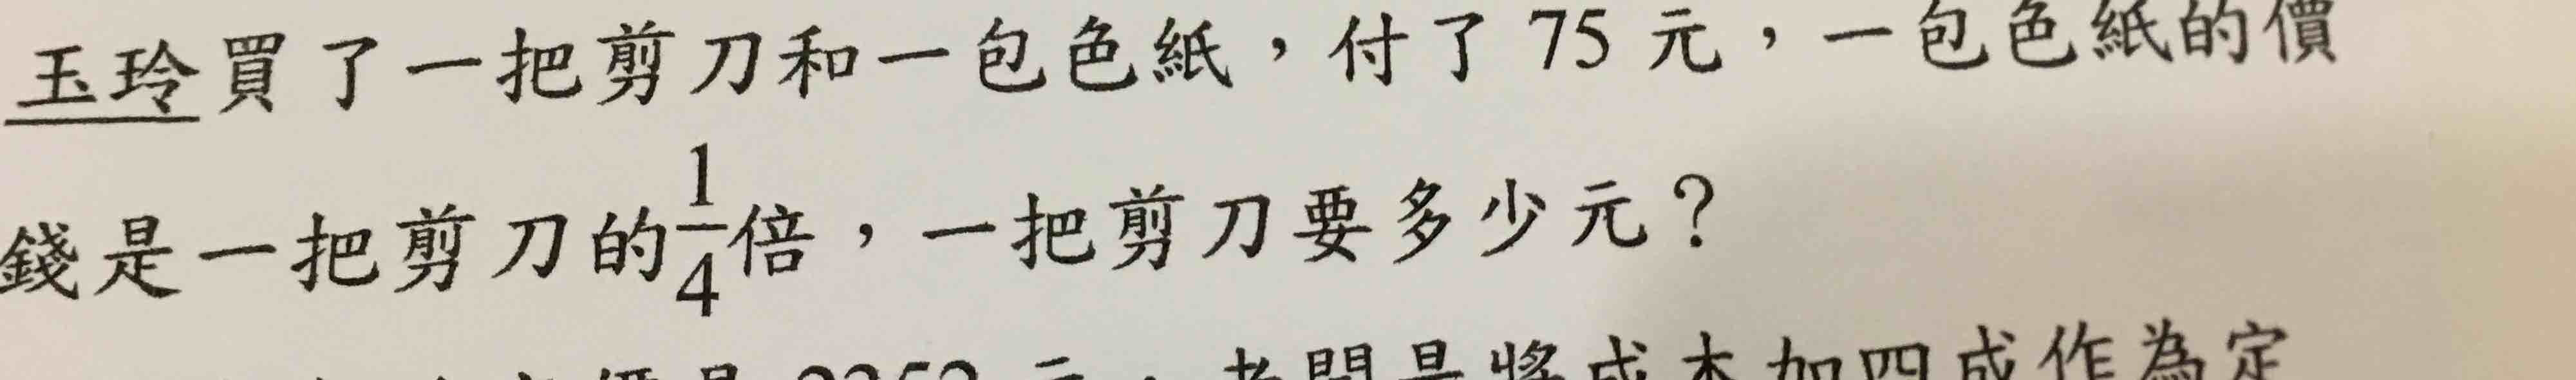 玉玲買了一把剪刀和一包色紙，付了 75 元，一包色紙的價
錢是一把剪刀的1/4倍，一把剪刀要多少元？
老闆是將成本加四成作為定